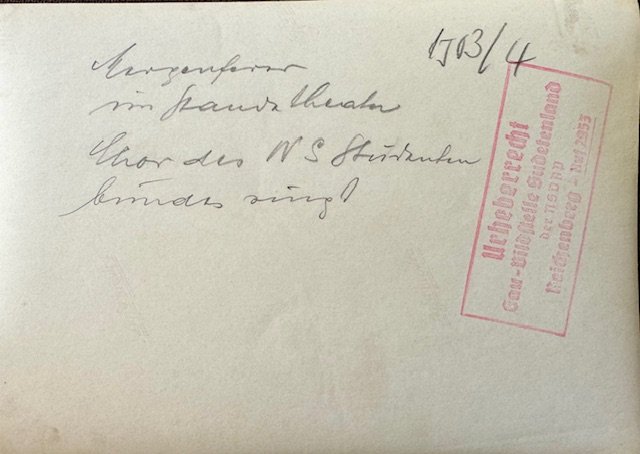 1513/4
Morgenfeier
im Ständetheater
Chor des NS Studenten
bundes singt
Urheberrecht
Gau-Bildstelle Sudetenland
der NSDAP
Reichenberg - Ruf 2955